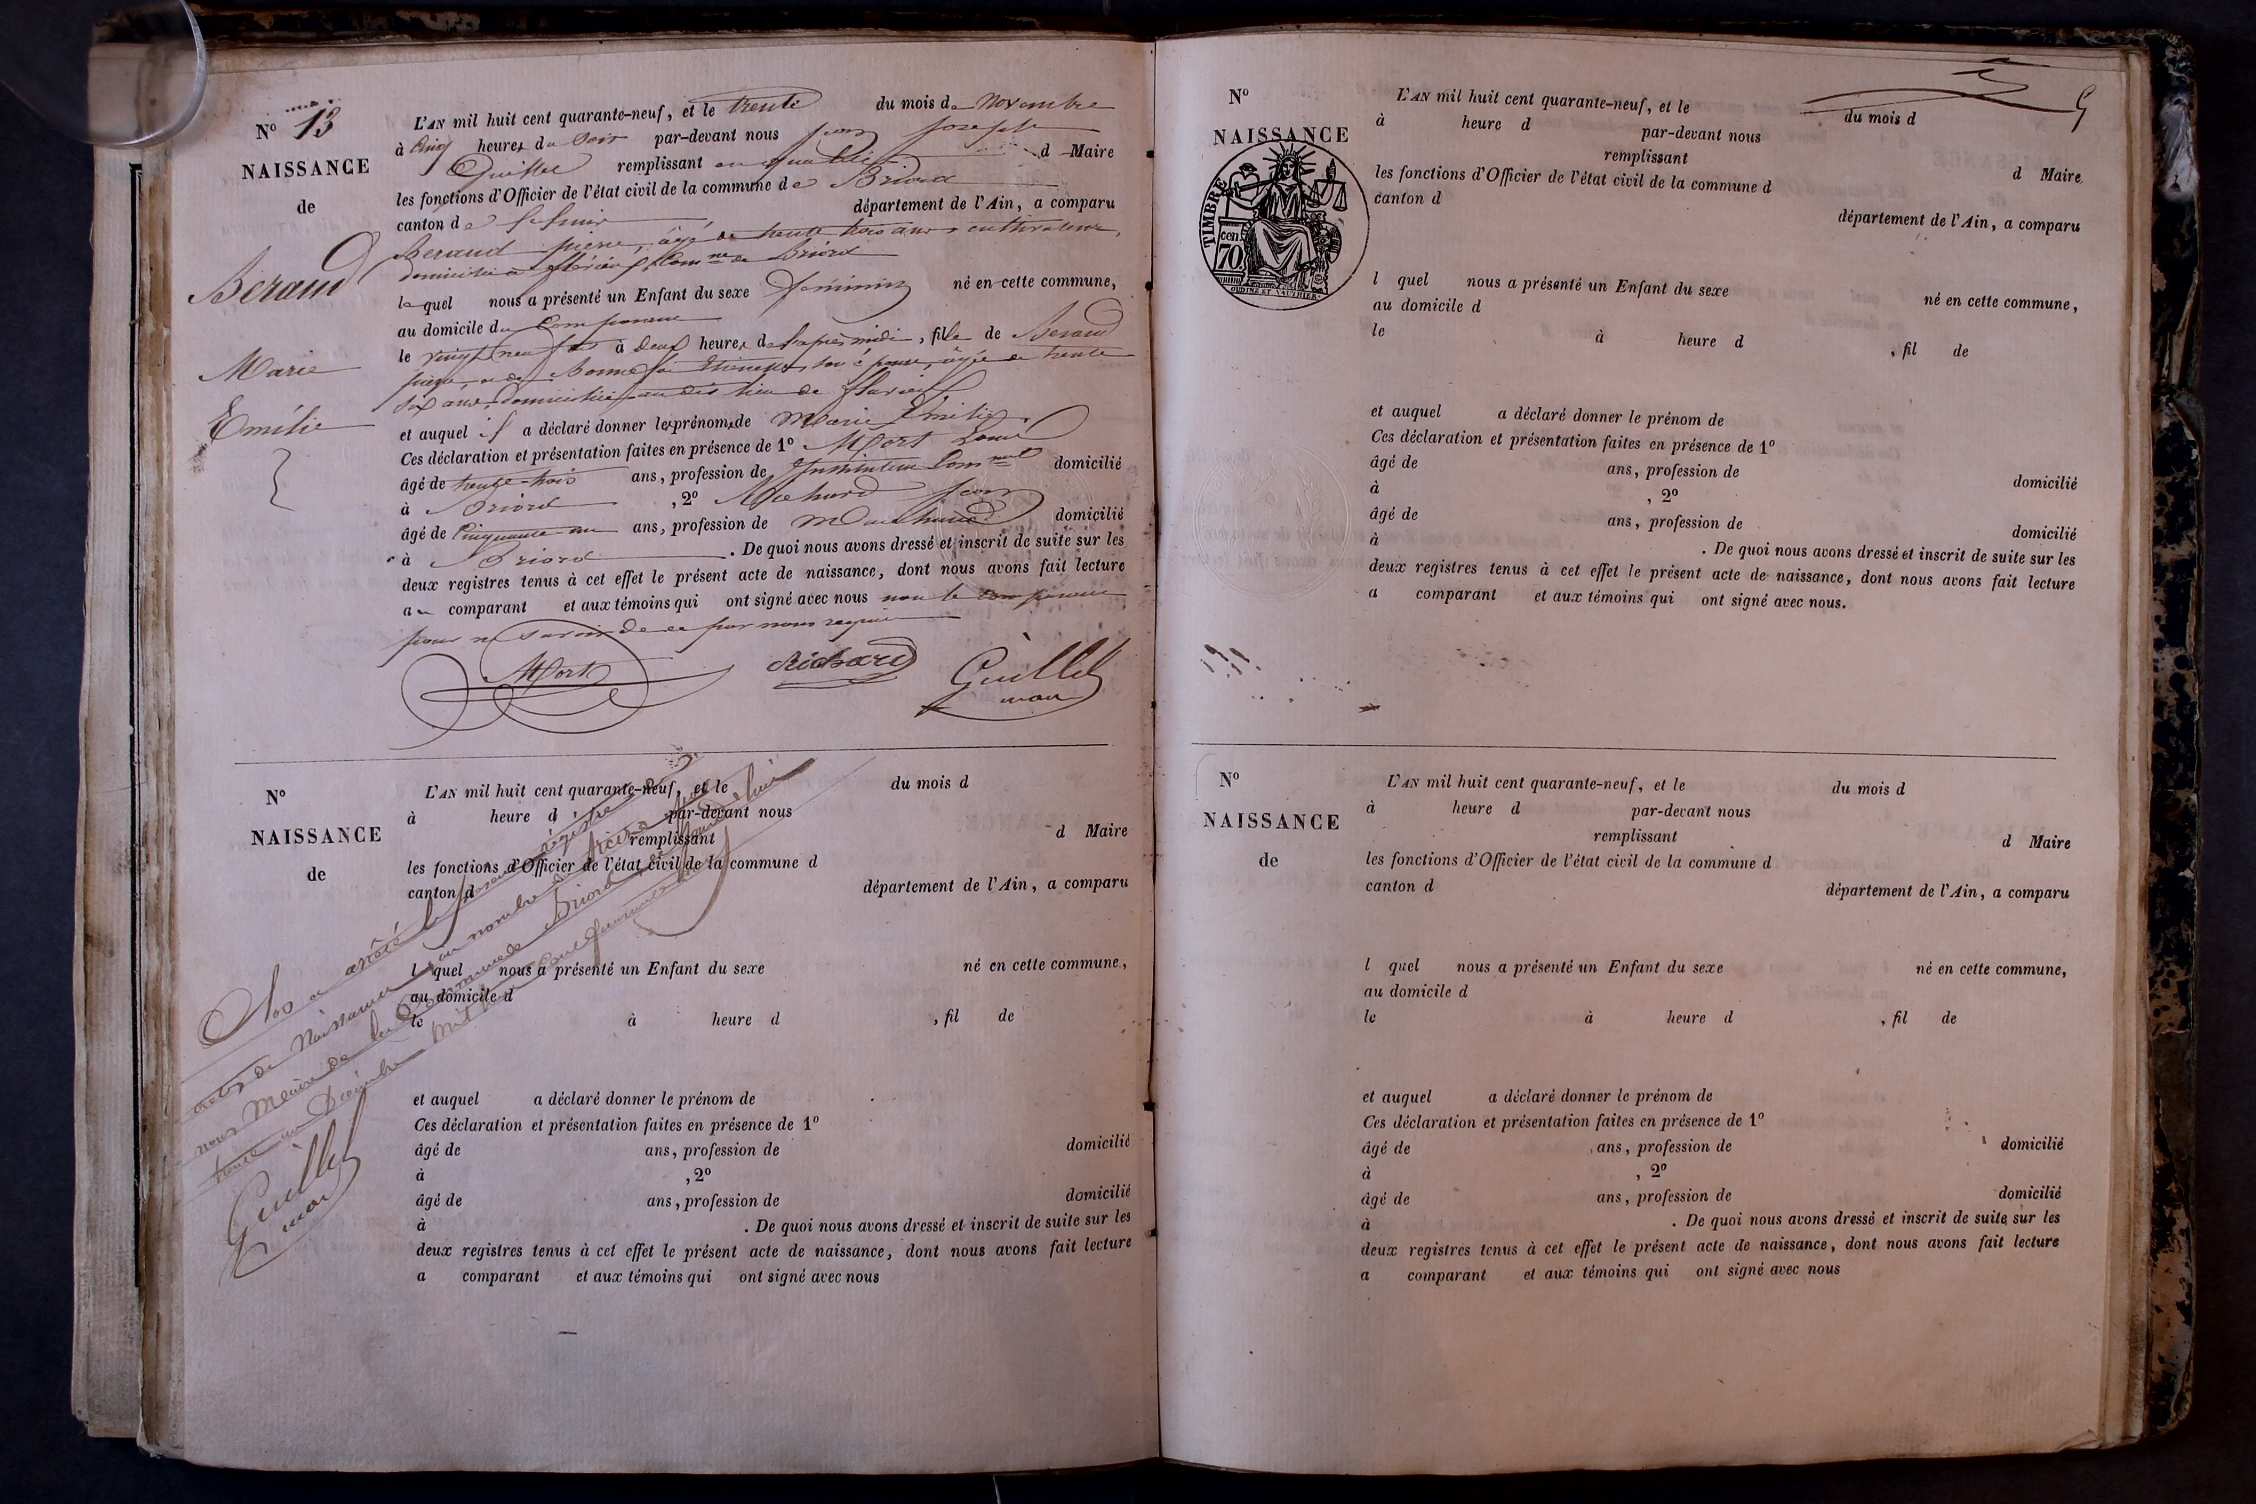 N° 13
NAISSANCE
de
Beraud
Marie
Emélie
L'AN mil huit cent quarante-neuf, et le trente du mois de Novembre
à Cinq heures du Soir par-devant nous Jean Joseph
Guillet remplissant en qualité d Maire
les fonctions d'Officier de l'état civil de la commune de Briord
canton de département de l'Ain, a comparu
Beraud pierre, âgé de trente trois ans, cultivateur,
domicilié à Comne de Briord
lequel nous a présenté un Enfant du sexe féminin né en cette commune,
au domicile du Comparant
le vingt neuf à deux heures de l'après midi, fille de Beraud
pierre et de son épouse, âgée de trente
six ans, domiciliée au dit lieu de
et auquel il a déclaré donner les prénoms de Marie Emélie
Ces déclaration et présentation faites en présence de 1° Mort
âgé de trente-trois ans, profession de Instituteur Comnal domicilié
à Briord, 2° Richard Jean
âgé de Cinquante un ans, profession de Marchand domicilié
à Briord. De quoi nous avons dressé et inscrit de suite sur les
deux registres tenus à cet effet le présent acte de naissance, dont nous avons fait lecture
au comparant et aux témoins qui ont signé avec nous non le comparant
pour ne savoir de ce par nous requis
Mort Richard Guillet
maire
N°
NAISSANCE
de
L'AN mil huit cent quarante-neuf, et le du mois d
à heure d par-devant nous
remplissant d Maire
les fonctions d'Officier de l'état civil de la commune d
canton d département de l'Ain, a comparu
l quel nous a présenté un Enfant du sexe né en cette commune,
au domicile d
le à heure d , fil de
et auquel a déclaré donner le prénom de
Ces déclaration et présentation faites en présence de 1°
âgé de ans, profession de domicilié
à , 2°
âgé de ans, profession de domicilié
à . De quoi nous avons dressé et inscrit de suite sur les
deux registres tenus à cet effet le présent acte de naissance, dont nous avons fait lecture
a comparant et aux témoins qui ont signé avec nous
Clos et arrêté le présent régistre
actes de Naissances au nombre de treize par
nous Maire de la Commune de Briord,
trente un Décembre mil huit cent quarante neuf
Guillet
maire
N°
NAISSANCE
TIMBRE
70 cen.
L'AN mil huit cent quarante-neuf, et le du mois d
à heure d par-devant nous
remplissant d Maire
les fonctions d'Officier de l'état civil de la commune d
canton d département de l'Ain, a comparu
l quel nous a présenté un Enfant du sexe né en cette commune,
au domicile d
le à heure d , fil de
et auquel a déclaré donner le prénom de
Ces déclaration et présentation faites en présence de 1°
âgé de ans, profession de domicilié
à , 2°
âgé de ans, profession de domicilié
à . De quoi nous avons dressé et inscrit de suite sur les
deux registres tenus à cet effet le présent acte de naissance, dont nous avons fait lecture
a comparant et aux témoins qui ont signé avec nous.
N°
NAISSANCE
de
L'AN mil huit cent quarante-neuf, et le du mois d
à heure d par-devant nous
remplissant d Maire
les fonctions d'Officier de l'état civil de la commune d
canton d département de l'Ain, a comparu
l quel nous a présenté un Enfant du sexe né en cette commune,
au domicile d
le à heure d , fil de
et auquel a déclaré donner le prénom de
Ces déclaration et présentation faites en présence de 1°
âgé de ans, profession de domicilié
à , 2°
âgé de ans, profession de domicilié
à . De quoi nous avons dressé et inscrit de suite sur les
deux registres tenus à cet effet le présent acte de naissance, dont nous avons fait lecture
a comparant et aux témoins qui ont signé avec nous